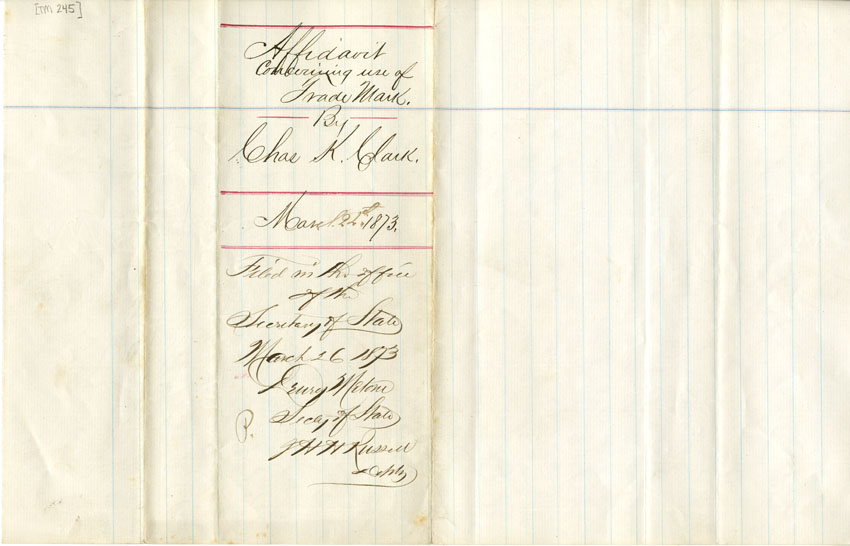 [TM 245]
Affidavit
Concerining use of
Trade Mark.
By
Chas K. Clark.
March 1873.
Filed in the office
of the
Secretary of State
March 26 1873
Drury Melone
Secty of State
P.
J H H Russell
Depty